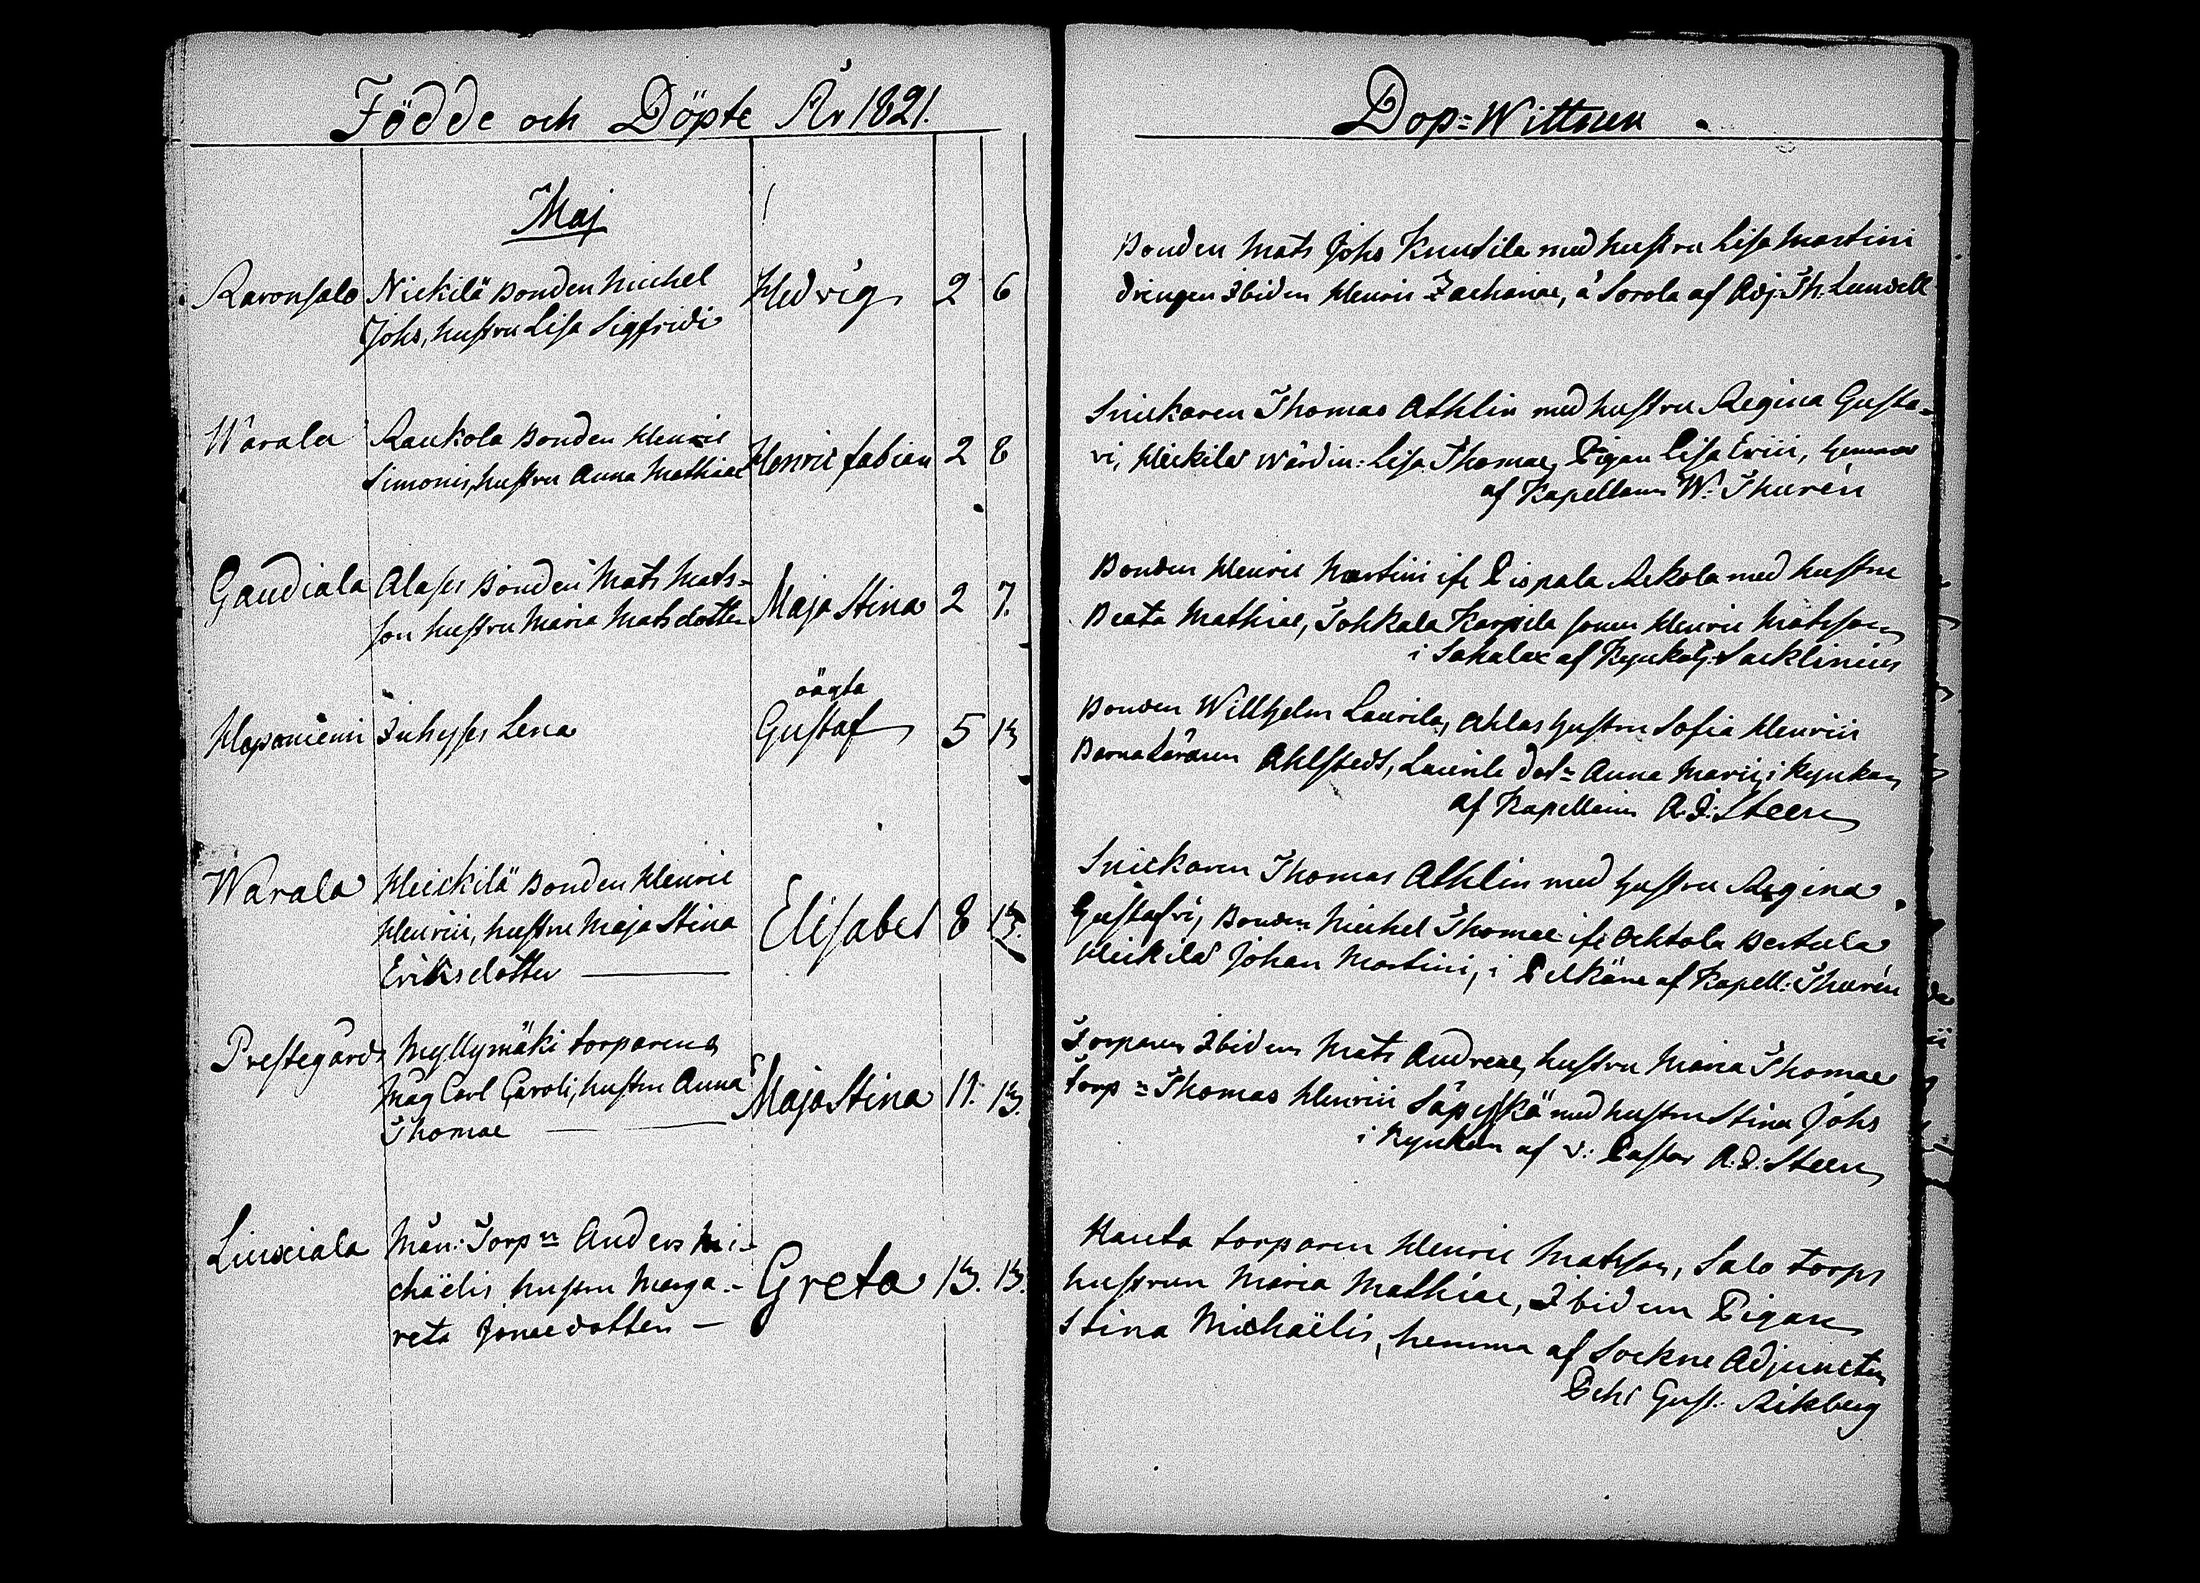 Födde och Döpte År 1821.
Maj
Raronsalo Nickilä Bonden Michel Hedvig 2 6
Johs, hustru Lisa Sigfridi
Warala Raukola Bonden Henric Henric fabian 2 8
Simonis, hustru Anna Mathiae
Gaudiala Alases Bonden Mats Mats- Maja Stina 2 7.
son hustru Maria Matsdotter
oägta
Haponiemi Inhyses Lena Gustaf 5 13
Warala Heickilä Bonden Henric Elisabet 8 13.
Henrici, hustru Maja Stina
Eriksdotter
Prestegårds Myllymäki torparens Maja Stina 11. 13.
Måg Carl Caroli, hustru Anna
Thomae
Liuxiala Män: Torpn Anders Mi- Greta 13. 13.
chaëlis hustru Marga-
reta Jonaedotter
Dop=Wittnen
Bonden Mats Johs Knutila med hustru Lisa Martini
drengen Ibidem Henric Zachariae, å Sorola af Adj: Th: Lundell
Snickaren Thomas Athlin med hustru Regina Gusta-
vi, Heickilä Wärdin: Lisa Thomae, Pigan Lisa Erici, hemma
af Kapellanen W: Thurén
Bonden Henric Martini ifr Pispala Rekola med hustru
Beata Mathiae, Tohkala Karpila sonen Henric Matsson
i Sahalax af Sacklinius
Bonden Willhelm Laurila, Ahlas hustru Sofia Henrici
Barnaläraren Ahlstedt, Laurila dot= Anna Marii, i Kyukan
af Kapellanen A. J: Steen
Snickaren Thomas Athlin med hustru Regina
Gustafvi, Bonden Michel Thomae ifr Ochtola Bertula
Heickilä Johan Martini, i Pelkäne af Kapell: Thurén
Torparen Ibidem Mats Andreae, hustru Maria Thomae
torp= Thomas Henrici Säpyskä med hustru Stina Johs
i Kyukan af v: Pastor A: J: Steen
Hauta torparen Henric Matsson, Salo torps
hustrun Maria Mathiae, Ibidem Pigan
Stina Michaëlis, hemma af Sockne Adjuncten
Pehr Gust: Rikberg